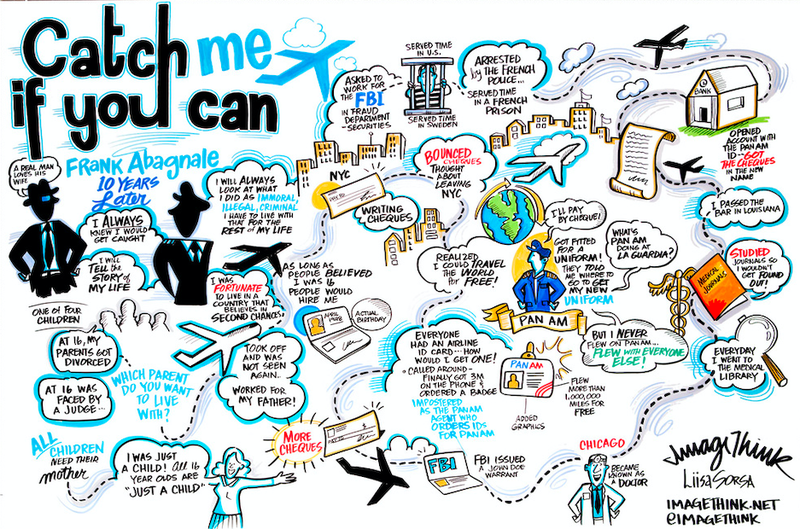 Catch me
if you can
FRANK ABAGNALE
10 YEARS
Later
A REAL MAN
LOVES HIS
WIFE
I ALWAYS
KNEW I WOULD
GET CAUGHT
I WILL
TELL the
STORY of
MY LIFE
I WILL ALWAYS
LOOK AT WHAT
I DID AS IMMORAL,
ILLEGAL, CRIMINAL
I HAVE TO LIVE WITH
THAT FOR THE
REST of MY LIFE
I WAS
FORTUNATE
TO LIVE IN A
COUNTRY THAT
BELIEVES IN
SECOND CHANCES
ONE OF FOUR
CHILDREN
AT 16, MY
PARENTS GOT
DIVORCED
AT 16 WAS
FACED BY
A JUDGE...
WHICH PARENT
DO YOU WANT
TO LIVE
WITH?
ALL CHILDREN
NEED THEIR
mother
I WAS JUST
A CHILD! All 16
YEAR OLDS ARE
"JUST A CHILD"
TOOK OFF
AND WAS
NOT SEEN
AGAIN.
WORKED FOR
MY FATHER!
AS LONG AS
PEOPLE BELIEVED
I WAS 16
PEOPLE WOULD
HIRE ME
APRIL
1948
ACTUAL
BIRTHDAY
NYC
WRITING
CHEQUES
BOUNCED
CHEQUES
THOUGHT
ABOUT
LEAVING
NYC
REALIZED
I COULD TRAVEL
THE WORLD
for FREE!
I'LL PAY
BY CHEQUE!
GOT FITTED
FOR A
UNIFORM!
THEY TOLD
ME WHERE TO
GO TO GET
MY NEW
UNIFORM
WHAT'S
PAN AM
DOING AT
LA GUARDIA?
PAN AM
EVERYONE
HAD AN AIRLINE
ID CARD... HOW
WOULD I GET ONE!
°CALLED AROUND-
FINALLY GOT 3M
ON THE PHONE &
ORDERED A BADGE
IMPOSTERED
AS THE PANAM
AGENT WHO
ORDERS IDS FOR
PANAM
PANAM
ADDED
GRAPHICS
FLEW
MORE THAN
1,000,000
MILES FOR
FREE
BUT I NEVER
FLEW ON PANAM...
FLEW WITH EVERYONE
ELSE!
MORE
CHEQUES
FBI
FBI ISSUED
A JOHN DOE
WARRANT
CHICAGO
BECAME
KNOWN AS
a DOCTOR
EVERYDAY
I WENT TO
THE MEDICAL
LIBRARY
MEDICAL
JOURNALS
STUDIED
JOURNALS SO
I WOULDN'T
GET FOUND
OUT!
I PASSED THE
BAR IN LOUISIANA
OPENED
ACCOUNT WITH
THE PANAM
ID-GOT
THE CHEQUES
IN THE NEW
NAME
BANK
ARRESTED
by THE FRENCH
POLICE...
SERVED TIME
IN A FRENCH
PRISON
SERVED TIME
IN U.S.
SERVED TIME
IN SWEDEN
ASKED TO
WORK FOR
THE FBI
IN FRAUD
DEPARTMENT
-SECURITIES
ImageThink
Liisa SORSA
IMAGETHINK.NET
@IMAGETHINK